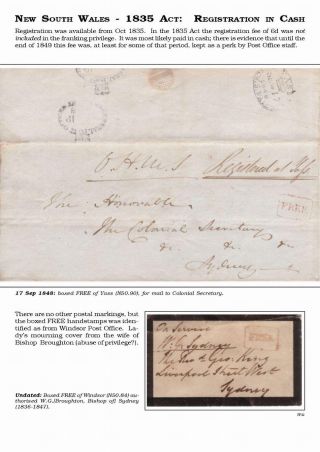 New South Wales - 1835 Act: Registration in Cash
Registration was available from Oct 1835. In the 1835 Act the registration fee of 6d was not
included in the franking privilege. It was most likely paid in cash; there is evidence that until the
end of 1849 this fee was, at least for some of that period, kept as a perk by Post Office staff.
O.H.M.S Registered at Yass
FREE
The Honorable
The Colonial Secretary
&c &c &c
Sydney
17 Sep 1848: boxed FREE of Yass (N50.90), for mail to Colonial Secretary.
There are no other postal markings, but
the boxed FREE handstamps was iden-
tified as from Windsor Post Office. La-
dy's mourning cover from the wife of
Bishop Broughton (abuse of privilege?).
Undated: Boxed FREE of Windsor (N50.84) au-
thorised W.G.(Broughton, Bishop of) Sydney
(1836-1847).
On Service
W.G. Sydney
FREE
Geo. King
Liverpool Street West
Sydney